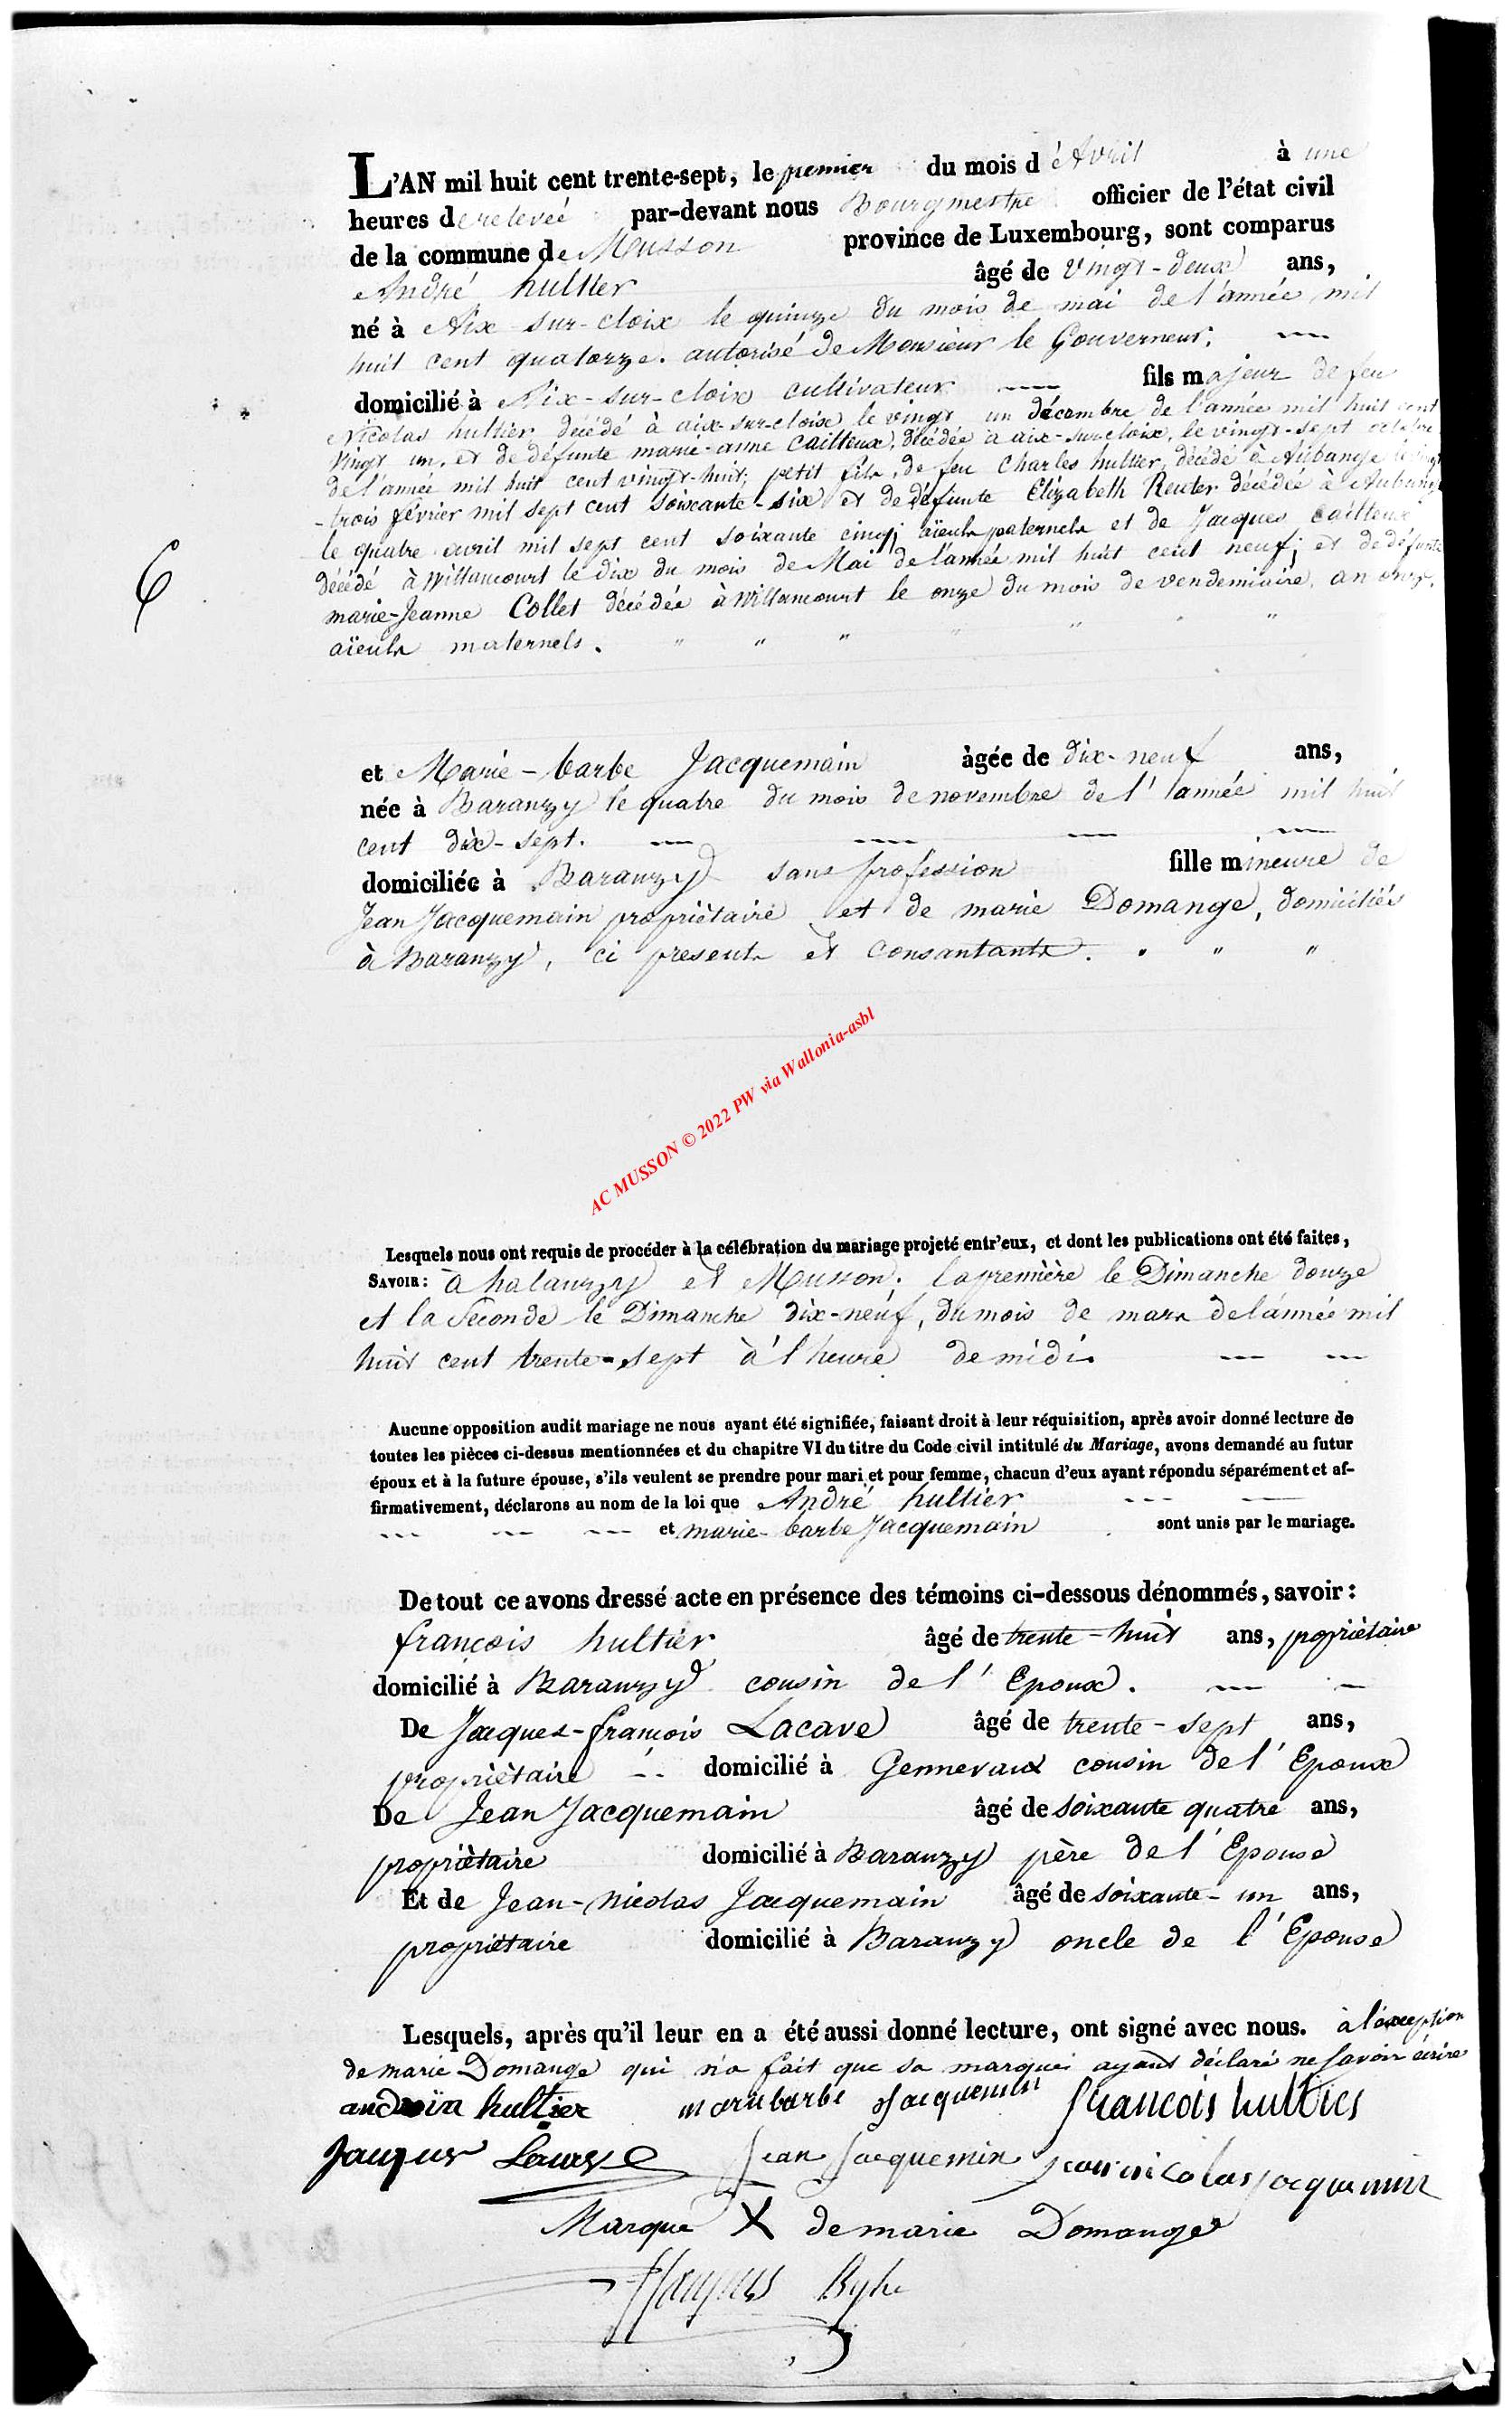 L'AN mil huit cent trente-sept, le premier du mois d'Avril à une
heures de relevée par-devant nous Bourgmestre officier de l'état civil
de la commune de Musson province de Luxembourg, sont comparus
André hultier âgé de vingt-deux ans,
né à Aix-sur-cloix le quinze du mois de mai de l'année mil
huit cent quatorze. autorisé de Monsieur le Gouverneur.
domicilié à Aix-sur-cloix cultivateur fils majeur de feu
Nicolas hultier décédé à aix-sur-cloix le vingt un décembre de l'année mil huit cent
vingt un, et de défunte marie-anne Cailteux, décédée à aix-sur-cloix, le vingt-sept octobre
de l'année mil huit cent vingt-huit; petit fils, de feu Charles hultier, décédé à Aubange le vingt
-trois février mil sept cent soixante-six et de défunte Elizabeth Reuter décédée à Aubange
le quatre avril mil sept cent soixante cinq; aïeuls paternels et de Jacques Cailteux
décédé à Willancourt le dix du mois de Mai de l'année mil huit cent neuf; et de défunte
marie-Jeanne Collet décédée à Willancourt le onze du mois de vendemiaire, an onze,
aïeuls maternels. " " " " " " "
6
et Marie-barbe Jacquemain âgée de dix-neuf ans,
née à Baranzy le quatre du mois de novembre de l'année mil huit
cent dix-sept.
domiciliée à Baranzy sans profession fille mineure de
Jean Jacquemain propriètaire et de marie Domange, domiciliés
à Baranzy, ci presents et consantants. " " "
AC MUSSON © 2022 PW via Wallonia-asbl
Lesquels nous ont requis de procéder à la célébration du mariage projeté entr'eux, et dont les publications ont été faites,
SAVOIR: à halanzy et Musson. la première le Dimanche douze
et la Seconde le Dimanche dix-neuf, du mois de mars de l'année mil
huit cent trente-sept à l'heure de midi.
Aucune opposition audit mariage ne nous ayant été signifiée, faisant droit à leur réquisition, après avoir donné lecture de
toutes les pièces ci-dessus mentionnées et du chapitre VI du titre du Code civil intitulé du Mariage, avons demandé au futur
époux et à la future épouse, s'ils veulent se prendre pour mari et pour femme, chacun d'eux ayant répondu séparément et af-
firmativement, déclarons au nom de la loi que André hultier
et marie-barbe Jacquemain sont unis par le mariage.
De tout ce avons dressé acte en présence des témoins ci-dessous dénommés, savoir:
françois hultier âgé de trente-huit ans, propriètaire
domicilié à Baranzy cousin de l'Epoux.
De Jacques-françois Lacave âgé de trente-sept ans,
propriètaire domicilié à Gennevaux cousin de l'Epoux
De Jean Jacquemain âgé de soixante quatre ans,
propriètaire domicilié à Baranzy père de l'Epouse
Et de Jean-Nicolas Jacquemain âgé de soixante-un ans,
propriètaire domicilié à Baranzy oncle de l'Epouse
Lesquels, après qu'il leur en a été aussi donné lecture, ont signé avec nous. à l'exception
de marie Domange qui n'a fait que sa marque ayant déclaré ne savoir écrire
hultier marie barbe Jacquemin francois hultier
Jacques Jean Jacquemin jean nicolas jacquemin
Marque X de marie Domange